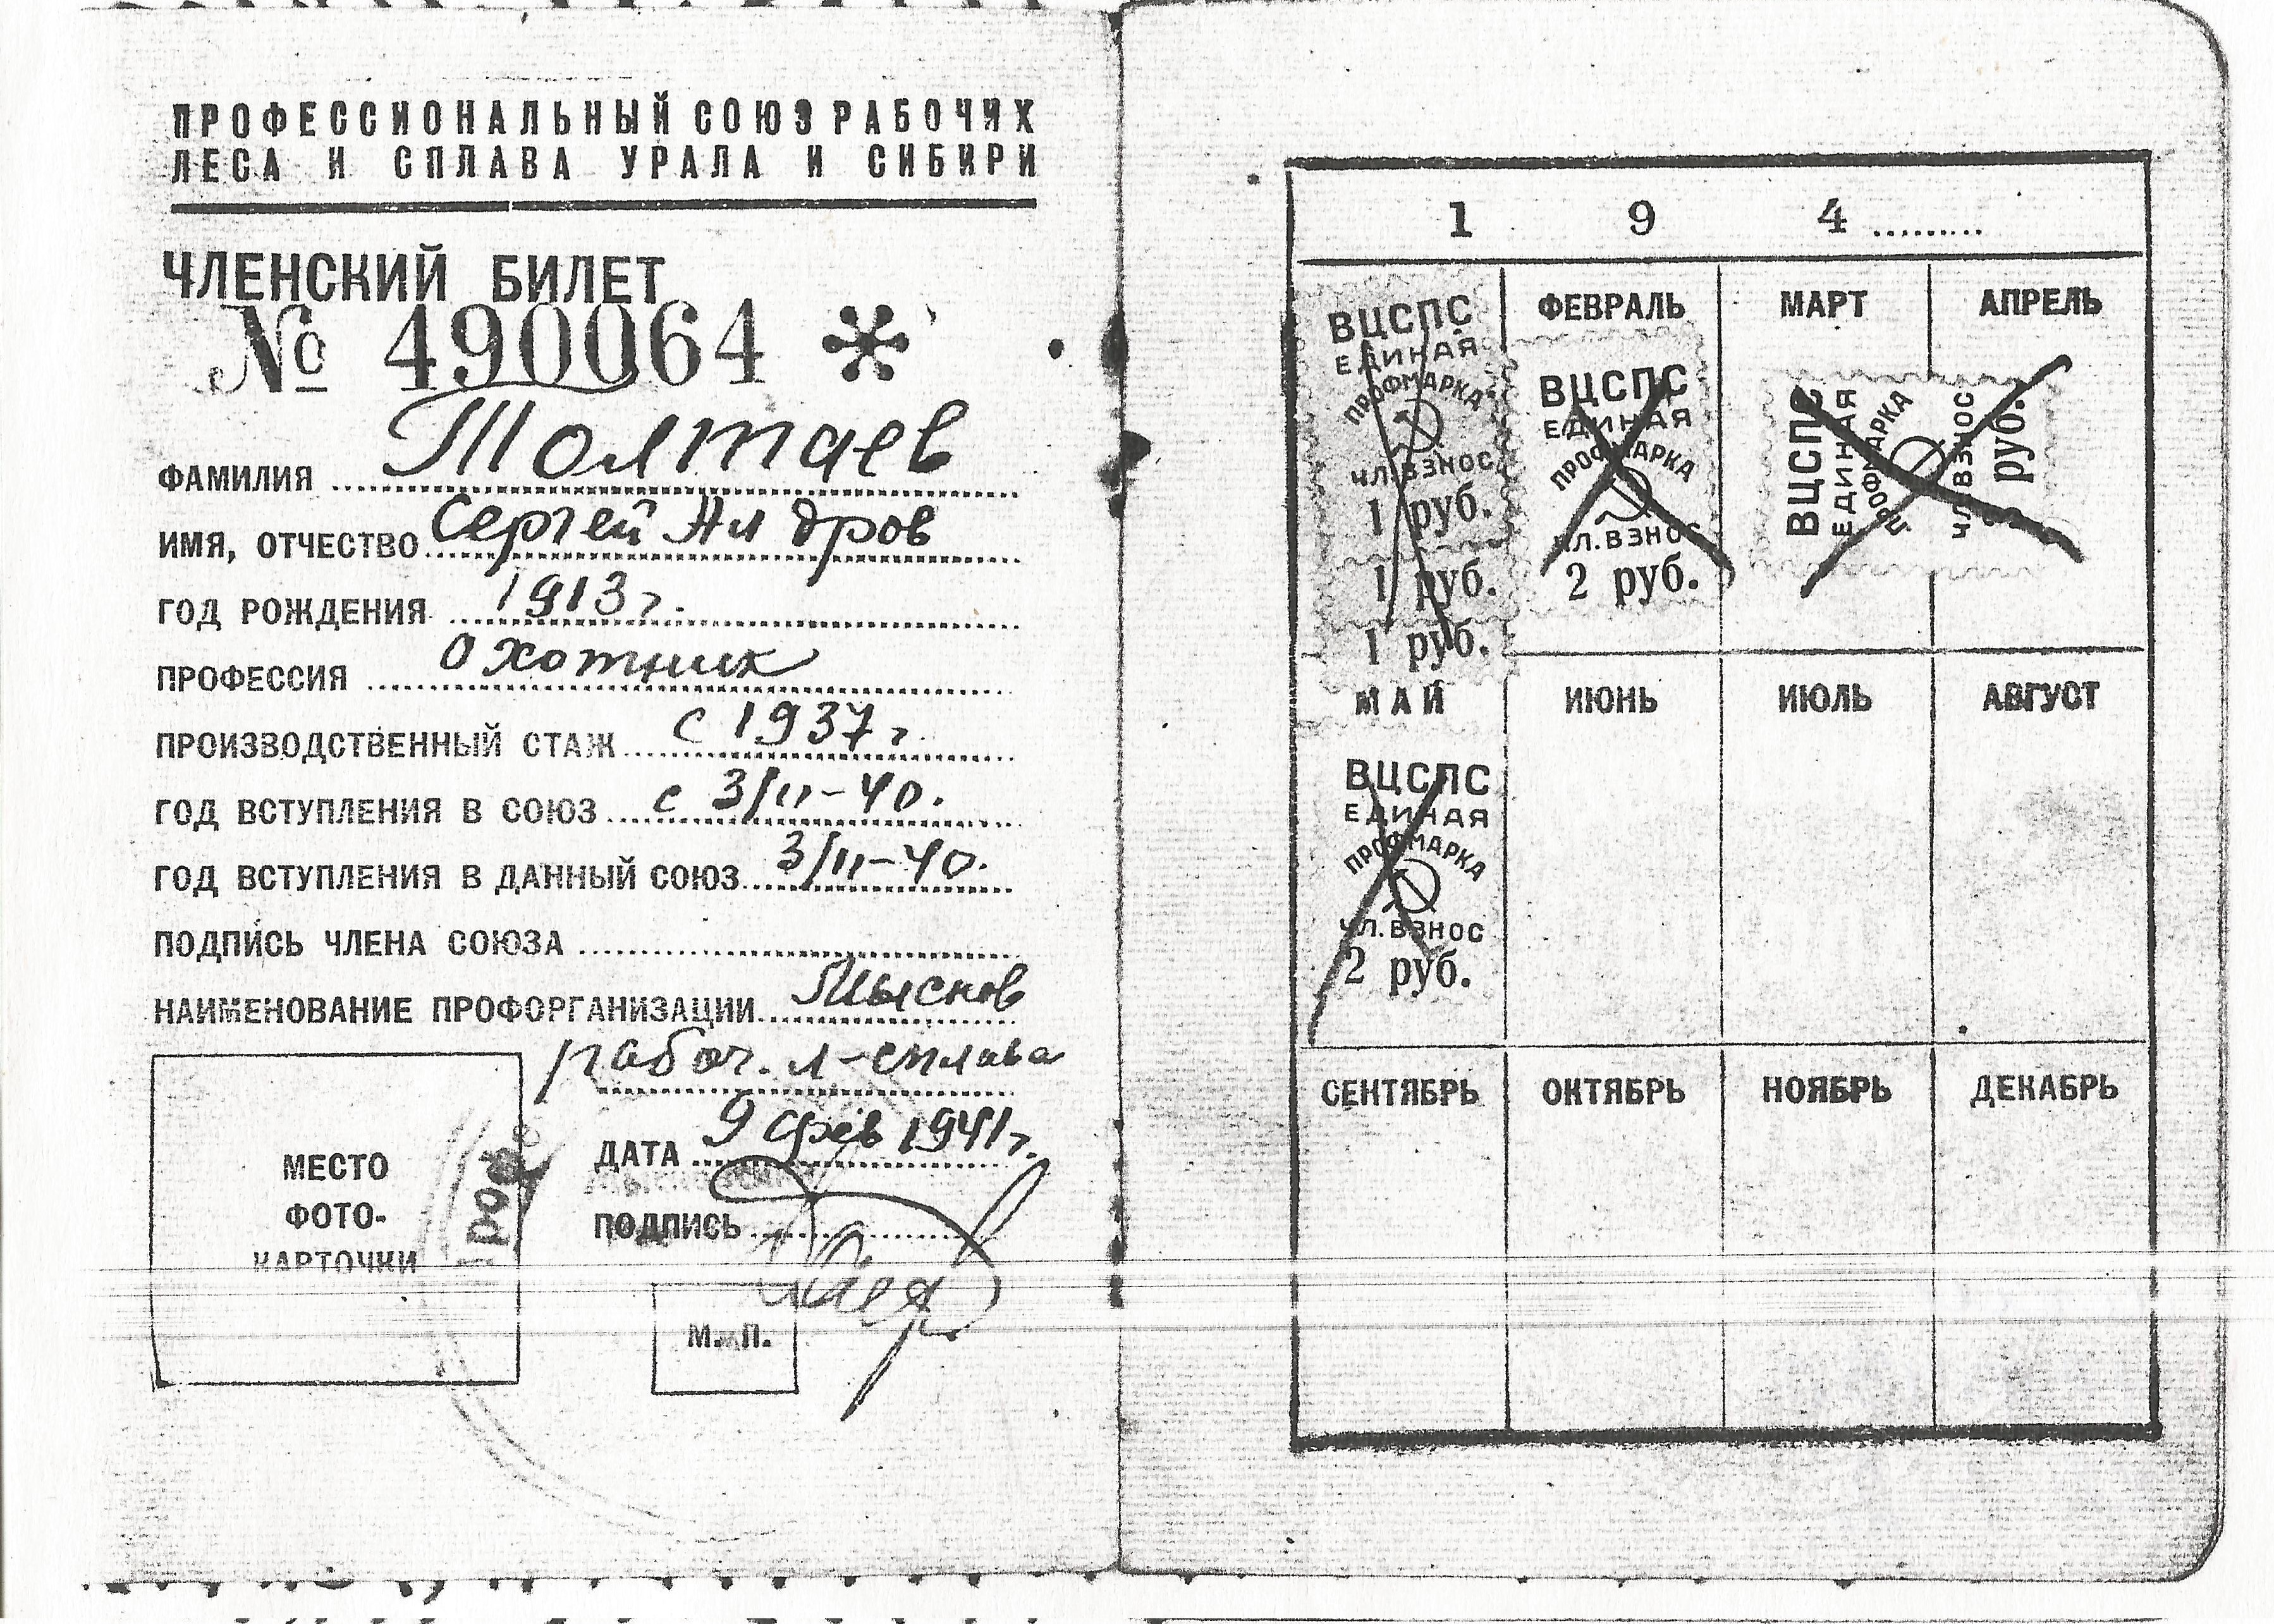 ПРОФЕССИОНАЛЬНЫЙ СОЮЗ РАБОЧИХ
ЛЕСА И СПЛАВА УРАЛА И СИБИРИ
ЧЛЕНСКИЙ БИЛЕТ
№ 490064 *
ФАМИЛИЯ Толтаев
ИМЯ, ОТЧЕСТВО Сергей
ГОД РОЖДЕНИЯ 1913 г.
ПРОФЕССИЯ Охотник
ПРОИЗВОДСТВЕННЫЙ СТАЖ с 1937 г.
ГОД ВСТУПЛЕНИЯ В СОЮЗ с 3/II-40.
ГОД ВСТУПЛЕНИЯ В ДАННЫЙ СОЮЗ 3/II-40.
ПОДПИСЬ ЧЛЕНА СОЮЗА
НАИМЕНОВАНИЕ ПРОФОРГАНИЗАЦИИ
рабоч. л-сплава
МЕСТО
ФОТО-
КАРТОЧКИ
ДАТА 9 фев 1941 г.
ПОДПИСЬ
М. П.
1 9 4
ВЦСПС
ЕДИНАЯ
ПРОФМАРКА
ЧЛ. ВЗНОС
1 руб.
1 руб.
1 руб.
ФЕВРАЛЬ
ВЦСПС
ЕДИНАЯ
ПРОФМАРКА
ЧЛ. ВЗНОС
2 руб.
МАРТ
АПРЕЛЬ
ВЦСПС
ЕДИНАЯ
ПРОФМАРКА
ЧЛ. ВЗНОС
руб.
МАЙ
ВЦСПС
ЕДИНАЯ
ПРОФМАРКА
ЧЛ. ВЗНОС
2 руб.
ИЮНЬ
ИЮЛЬ
АВГУСТ
СЕНТЯБРЬ
ОКТЯБРЬ
НОЯБРЬ
ДЕКАБРЬ